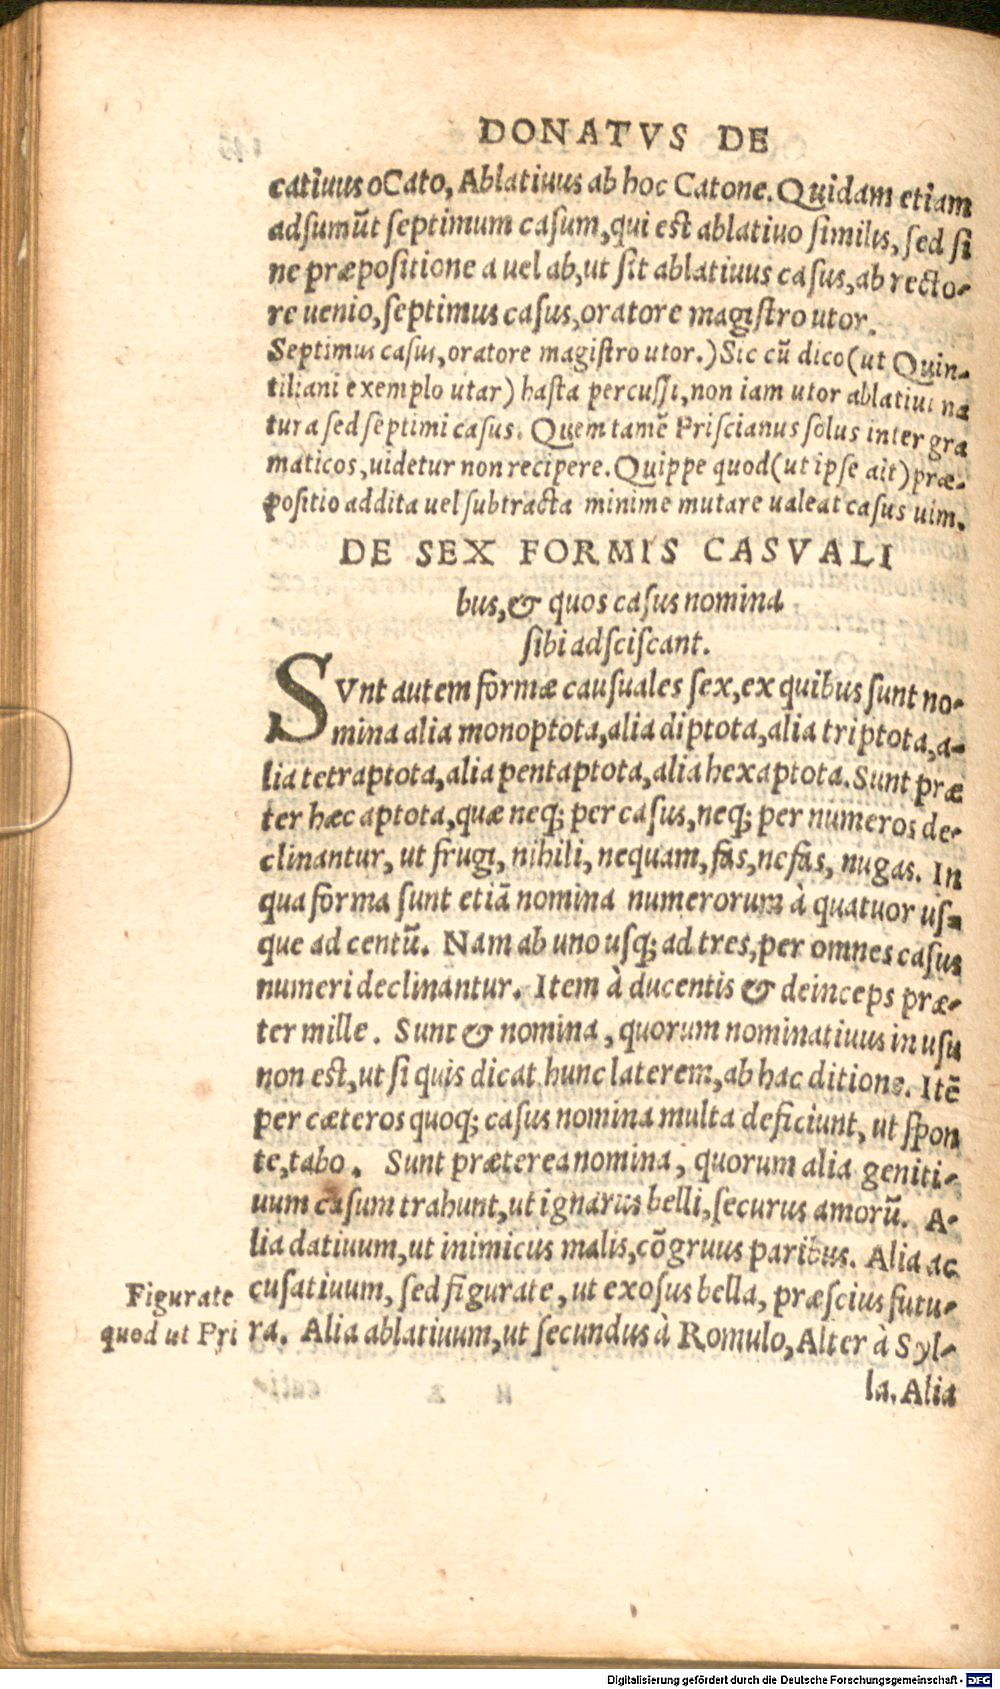 DONATVS DE
catiuus o Cato, Ablatiuus ab hoc Catone. Quidam etiam
adsumūt septimum casum, qui est ablatiuo similis, sed si
ne præpositione a uel ab, ut sit ablatiuus casus, ab recto-
re uenio, septimus casus, oratore magistro utor.
Septimus casus, oratore magistro utor.) Sic cū dico (ut Quin-
tiliani exemplo utar) hasta percussi, non iam utor ablatiui na
tura sed septimi casus. Quem tamē Priscianus solus inter gra
maticos, uidetur non recipere. Quippe quod (ut ipse ait) præ-
positio addita uel subtracta minime mutare ualeat casus uim.
DE SEX FORMIS CASVALI
bus, & quos casus nomina
sibi adsciscant.
SVnt autem formæ causuales sex, ex quibus sunt no-
mina alia monoptota, alia diptota, alia triptota, a-
lia tetraptota, alia pentaptota, alia hexaptota. Sunt præ
ter hæc aptota, quæ neq; per casus, neq; per numeros de-
clinantur, ut frugi, nihili, nequam, fas, nefas, nugas. In
qua forma sunt etiā nomina numerorum à quatuor us-
que ad centū. Nam ab uno usq; ad tres, per omnes casus
numeri declinantur. Item à ducentis & deinceps præ-
ter mille. Sunt & nomina, quorum nominatiuus in usu
non est, ut si quis dicat hunc laterem, ab hac ditione. Itē
per cæteros quoq; casus nomina multa deficiunt, ut spon
te, tabo. Sunt præterea nomina, quorum alia geniti-
uum casum trahunt, ut ignarus belli, securus amorū. A-
lia datiuum, ut inimicus malis, cōgruus paribus. Alia ac
cusatiuum, sed figurate, ut exosus bella, præscius futu-
ra. Alia ablatiuum, ut secundus à Romulo, Alter à Syl-
la. Alia
Figurate
quod ut Pri
Digitalisierung gefördert durch die Deutsche Forschungsgemeinschaft - DFG